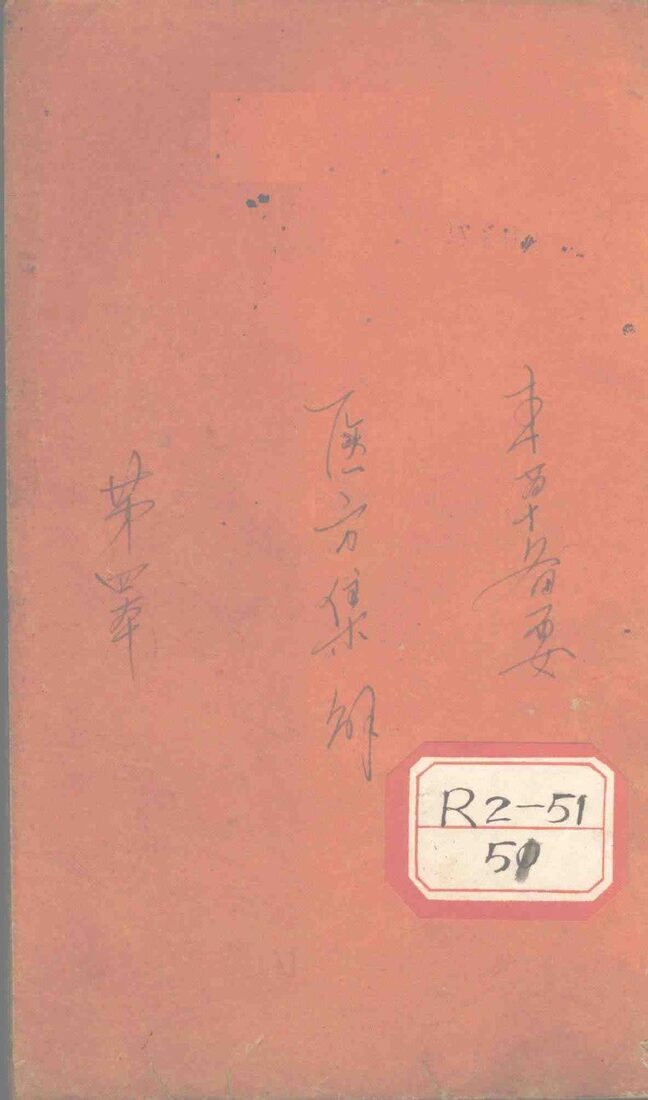 本草备要
医方集解
第四本
R2-51
51